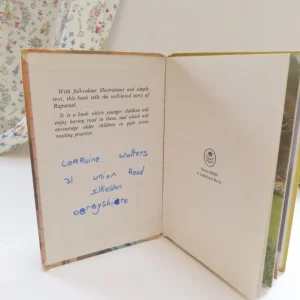 With full-colour illustrations and simple
text, this book tells the well-loved story of
Rapunzel.
It is a book which younger children will
enjoy having read to them, and which will
encourage older children to gain extra
reading practice.
LorRaine Walters
31 union Road
Ilkeston
Derbyshire
Series 606D
A Ladybird Book